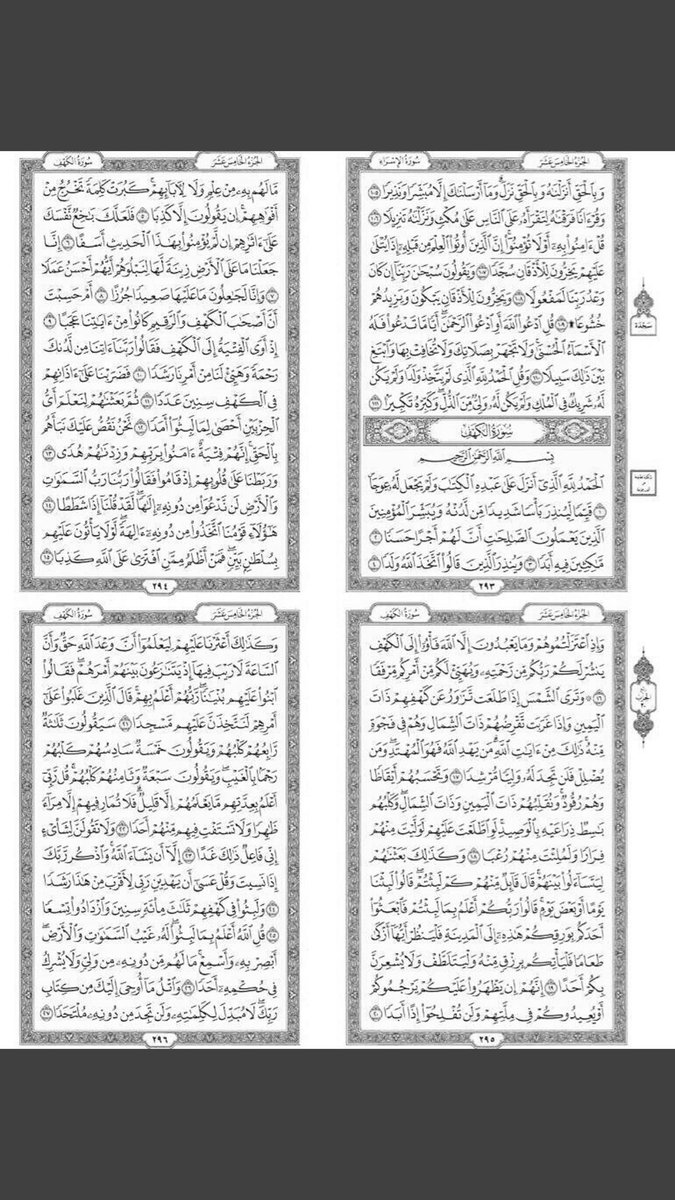 الجزء الخامس عشر
سورة الإسراء
وَبِالْحَقِّ أَنزَلْنَٰهُ وَبِالْحَقِّ نَزَلَ ۗ وَمَا أَرْسَلْنَٰكَ إِلَّا مُبَشِّرًا وَنَذِيرًا ١٠٥
وَقُرْءَانًا فَرَقْنَٰهُ لِتَقْرَأَهُۥ عَلَى النَّاسِ عَلَىٰ مُكْثٍ وَنَزَّلْنَٰهُ تَنزِيلًا ١٠٦
قُلْ ءَامِنُوا بِهِۦٓ أَوْ لَا تُؤْمِنُوٓا ۚ إِنَّ الَّذِينَ أُوتُوا الْعِلْمَ مِن قَبْلِهِۦٓ إِذَا يُتْلَىٰ
عَلَيْهِمْ يَخِرُّونَ لِلْأَذْقَانِ سُجَّدًا ١٠٧ وَيَقُولُونَ سُبْحَٰنَ رَبِّنَآ إِن كَانَ
وَعْدُ رَبِّنَا لَمَفْعُولًا ١٠٨ وَيَخِرُّونَ لِلْأَذْقَانِ يَبْكُونَ وَيَزِيدُهُمْ
خُشُوعًا ۩ ١٠٩ قُلِ ادْعُوا اللَّهَ أَوِ ادْعُوا الرَّحْمَٰنَ ۖ أَيًّا مَّا تَدْعُوا فَلَهُ
الْأَسْمَآءُ الْحُسْنَىٰ ۚ وَلَا تَجْهَرْ بِصَلَاتِكَ وَلَا تُخَافِتْ بِهَا وَابْتَغِ
بَيْنَ ذَٰلِكَ سَبِيلًا ١١٠ وَقُلِ الْحَمْدُ لِلَّهِ الَّذِي لَمْ يَتَّخِذْ وَلَدًا وَلَمْ يَكُن
لَّهُۥ شَرِيكٌ فِي الْمُلْكِ وَلَمْ يَكُن لَّهُۥ وَلِيٌّ مِّنَ الذُّلِّ ۖ وَكَبِّرْهُ تَكْبِيرًا ١١١
سورة الكهف
بِسْمِ اللَّهِ الرَّحْمَٰنِ الرَّحِيمِ
الْحَمْدُ لِلَّهِ الَّذِيٓ أَنزَلَ عَلَىٰ عَبْدِهِ الْكِتَٰبَ وَلَمْ يَجْعَل لَّهُۥ عِوَجَا
١ قَيِّمًا لِّيُنذِرَ بَأْسًا شَدِيدًا مِّن لَّدُنْهُ وَيُبَشِّرَ الْمُؤْمِنِينَ
الَّذِينَ يَعْمَلُونَ الصَّٰلِحَٰتِ أَنَّ لَهُمْ أَجْرًا حَسَنًا ٢
مَّٰكِثِينَ فِيهِ أَبَدًا ٣ وَيُنذِرَ الَّذِينَ قَالُوا اتَّخَذَ اللَّهُ وَلَدًا ٤
٢٩٣
سَجْدَة
الجزء الخامس عشر
سورة الكهف
مَّا لَهُم بِهِۦ مِنْ عِلْمٍ وَلَا لِءَابَآئِهِمْ ۚ كَبُرَتْ كَلِمَةً تَخْرُجُ مِنْ
أَفْوَٰهِهِمْ ۚ إِن يَقُولُونَ إِلَّا كَذِبًا ٥ فَلَعَلَّكَ بَٰخِعٌ نَّفْسَكَ
عَلَىٰٓ ءَاثَٰرِهِمْ إِن لَّمْ يُؤْمِنُوا بِهَٰذَا الْحَدِيثِ أَسَفًا ٦ إِنَّا
جَعَلْنَا مَا عَلَى الْأَرْضِ زِينَةً لَّهَا لِنَبْلُوَهُمْ أَيُّهُمْ أَحْسَنُ عَمَلًا
٧ وَإِنَّا لَجَٰعِلُونَ مَا عَلَيْهَا صَعِيدًا جُرُزًا ٨ أَمْ حَسِبْتَ
أَنَّ أَصْحَٰبَ الْكَهْفِ وَالرَّقِيمِ كَانُوا مِنْ ءَايَٰتِنَا عَجَبًا ٩
إِذْ أَوَى الْفِتْيَةُ إِلَى الْكَهْفِ فَقَالُوا رَبَّنَآ ءَاتِنَا مِن لَّدُنكَ
رَحْمَةً وَهَيِّئْ لَنَا مِنْ أَمْرِنَا رَشَدًا ١٠ فَضَرَبْنَا عَلَىٰٓ ءَاذَانِهِمْ
فِي الْكَهْفِ سِنِينَ عَدَدًا ١١ ثُمَّ بَعَثْنَٰهُمْ لِنَعْلَمَ أَيُّ
الْحِزْبَيْنِ أَحْصَىٰ لِمَا لَبِثُوٓا أَمَدًا ١٢ نَّحْنُ نَقُصُّ عَلَيْكَ نَبَأَهُم
بِالْحَقِّ ۚ إِنَّهُمْ فِتْيَةٌ ءَامَنُوا بِرَبِّهِمْ وَزِدْنَٰهُمْ هُدًى ١٣
وَرَبَطْنَا عَلَىٰ قُلُوبِهِمْ إِذْ قَامُوا فَقَالُوا رَبُّنَا رَبُّ السَّمَٰوَٰتِ
وَالْأَرْضِ لَن نَّدْعُوَا مِن دُونِهِۦٓ إِلَٰهًا ۖ لَّقَدْ قُلْنَآ إِذًا شَطَطًا ١٤
هَٰٓؤُلَآءِ قَوْمُنَا اتَّخَذُوا مِن دُونِهِۦٓ ءَالِهَةً ۖ لَّوْلَا يَأْتُونَ عَلَيْهِم
بِسُلْطَٰنٍ بَيِّنٍ ۖ فَمَنْ أَظْلَمُ مِمَّنِ افْتَرَىٰ عَلَى اللَّهِ كَذِبًا ١٥
٢٩٤
الجزء الخامس عشر
سورة الكهف
وَإِذِ اعْتَزَلْتُمُوهُمْ وَمَا يَعْبُدُونَ إِلَّا اللَّهَ فَأْوُوٓا إِلَى الْكَهْفِ
يَنشُرْ لَكُمْ رَبُّكُم مِّن رَّحْمَتِهِۦ وَيُهَيِّئْ لَكُم مِّنْ أَمْرِكُم مِّرْفَقًا
١٦ ۞ وَتَرَى الشَّمْسَ إِذَا طَلَعَت تَّزَٰوَرُ عَن كَهْفِهِمْ ذَاتَ
الْيَمِينِ وَإِذَا غَرَبَت تَّقْرِضُهُمْ ذَاتَ الشِّمَالِ وَهُمْ فِي فَجْوَةٍ
مِّنْهُ ۚ ذَٰلِكَ مِنْ ءَايَٰتِ اللَّهِ ۗ مَن يَهْدِ اللَّهُ فَهُوَ الْمُهْتَدِ ۖ وَمَن
يُضْلِلْ فَلَن تَجِدَ لَهُۥ وَلِيًّا مُّرْشِدًا ١٧ وَتَحْسَبُهُمْ أَيْقَاظًا
وَهُمْ رُقُودٌ ۚ وَنُقَلِّبُهُمْ ذَاتَ الْيَمِينِ وَذَاتَ الشِّمَالِ ۖ وَكَلْبُهُم
بَٰسِطٌ ذِرَاعَيْهِ بِالْوَصِيدِ ۚ لَوِ اطَّلَعْتَ عَلَيْهِمْ لَوَلَّيْتَ مِنْهُمْ
فِرَارًا وَلَمُلِئْتَ مِنْهُمْ رُعْبًا ١٨ وَكَذَٰلِكَ بَعَثْنَٰهُمْ
لِيَتَسَآءَلُوا بَيْنَهُمْ ۚ قَالَ قَآئِلٌ مِّنْهُمْ كَمْ لَبِثْتُمْ ۖ قَالُوا لَبِثْنَا
يَوْمًا أَوْ بَعْضَ يَوْمٍ ۚ قَالُوا رَبُّكُمْ أَعْلَمُ بِمَا لَبِثْتُمْ فَابْعَثُوٓا
أَحَدَكُم بِوَرِقِكُمْ هَٰذِهِۦٓ إِلَى الْمَدِينَةِ فَلْيَنظُرْ أَيُّهَآ أَزْكَىٰ
طَعَامًا فَلْيَأْتِكُم بِرِزْقٍ مِّنْهُ وَلْيَتَلَطَّفْ وَلَا يُشْعِرَنَّ
بِكُمْ أَحَدًا ١٩ إِنَّهُمْ إِن يَظْهَرُوا عَلَيْكُمْ يَرْجُمُوكُمْ
أَوْ يُعِيدُوكُمْ فِي مِلَّتِهِمْ وَلَن تُفْلِحُوٓا إِذًا أَبَدًا ٢٠
٢٩٥
سورة الكهف
الجزء الخامس عشر
وَكَذَٰلِكَ أَعْثَرْنَا عَلَيْهِمْ لِيَعْلَمُوٓا أَنَّ وَعْدَ اللَّهِ حَقٌّ وَأَنَّ
السَّاعَةَ لَا رَيْبَ فِيهَآ إِذْ يَتَنَٰزَعُونَ بَيْنَهُمْ أَمْرَهُمْ ۖ فَقَالُوا
ابْنُوا عَلَيْهِم بُنْيَٰنًا ۖ رَّبُّهُمْ أَعْلَمُ بِهِمْ ۚ قَالَ الَّذِينَ غَلَبُوا عَلَىٰٓ
أَمْرِهِمْ لَنَتَّخِذَنَّ عَلَيْهِم مَّسْجِدًا ٢١ سَيَقُولُونَ ثَلَٰثَةٌ
رَّابِعُهُمْ كَلْبُهُمْ وَيَقُولُونَ خَمْسَةٌ سَادِسُهُمْ كَلْبُهُمْ
رَجْمًۢا بِالْغَيْبِ ۖ وَيَقُولُونَ سَبْعَةٌ وَثَامِنُهُمْ كَلْبُهُمْ ۚ قُل رَّبِّيٓ
أَعْلَمُ بِعِدَّتِهِم مَّا يَعْلَمُهُمْ إِلَّا قَلِيلٌ ۗ فَلَا تُمَارِ فِيهِمْ إِلَّا مِرَآءً
ظَٰهِرًا وَلَا تَسْتَفْتِ فِيهِم مِّنْهُمْ أَحَدًا ٢٢ وَلَا تَقُولَنَّ لِشَا۟يْءٍ
إِنِّي فَاعِلٌ ذَٰلِكَ غَدًا ٢٣ إِلَّآ أَن يَشَآءَ اللَّهُ ۚ وَاذْكُر رَّبَّكَ
إِذَا نَسِيتَ وَقُلْ عَسَىٰٓ أَن يَهْدِيَنِ رَبِّي لِأَقْرَبَ مِنْ هَٰذَا رَشَدًا
٢٤ وَلَبِثُوا فِي كَهْفِهِمْ ثَلَٰثَ مِا۟ئَةٍ سِنِينَ وَازْدَادُوا تِسْعًا
٢٥ قُلِ اللَّهُ أَعْلَمُ بِمَا لَبِثُوا ۖ لَهُۥ غَيْبُ السَّمَٰوَٰتِ وَالْأَرْضِ ۖ
أَبْصِرْ بِهِۦ وَأَسْمِعْ ۚ مَا لَهُم مِّن دُونِهِۦ مِن وَلِيٍّ وَلَا يُشْرِكُ
فِي حُكْمِهِۦٓ أَحَدًا ٢٦ وَاتْلُ مَآ أُوحِيَ إِلَيْكَ مِن كِتَابِ
رَبِّكَ ۖ لَا مُبَدِّلَ لِكَلِمَٰتِهِۦ وَلَن تَجِدَ مِن دُونِهِۦ مُلْتَحَدًا ٢٧
٢٩٦